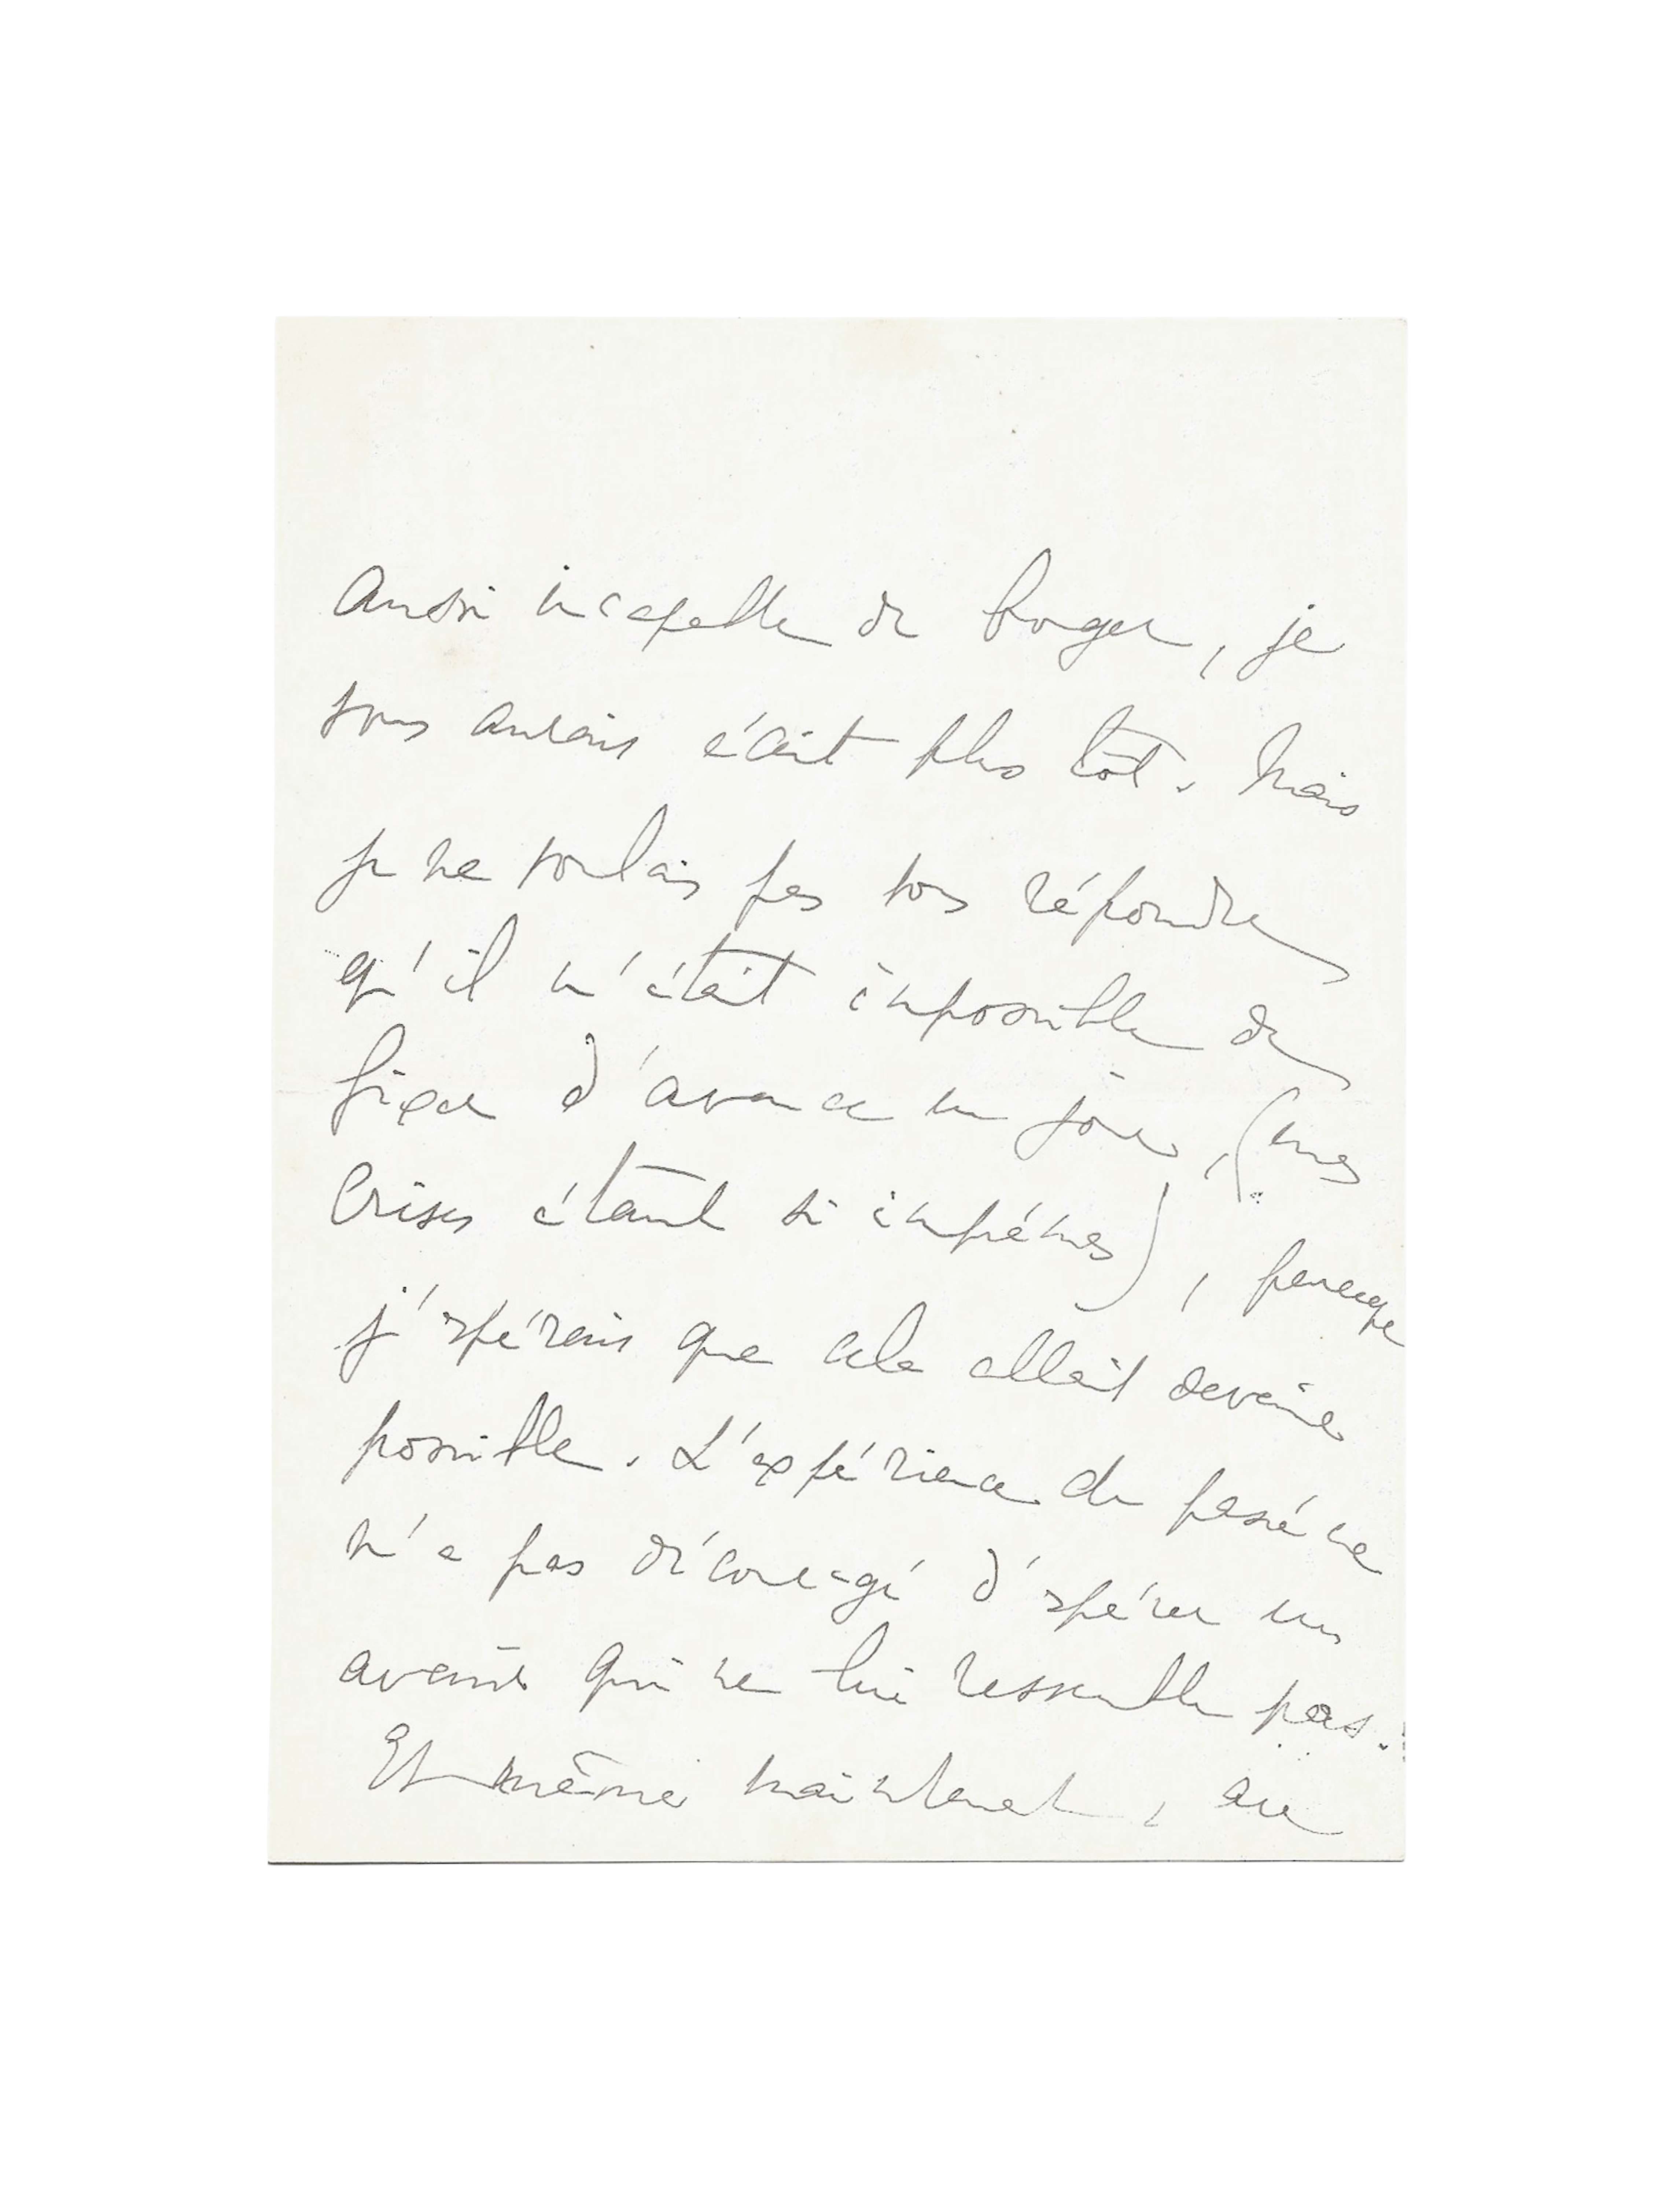 Aussi incapable de bouger, je
vous aurais écrit plus tôt. Mais
je ne voulais pas vous répondre
qu'il m'était impossible de
fixer d'avance un jour, (mes
crises étant si imprévues), parceque
j'espérais que cela allait devenir
possible. L'expérience du passé ne
m'a pas découragé d'espérer un
avenir qui ne lui ressemble pas.
Et même maintenant, au